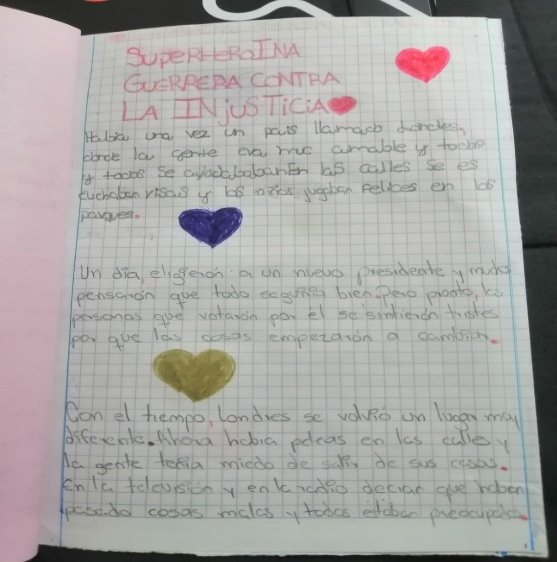 SUPERHEROINA
GUERRERA CONTRA
LA INJUSTICIA
Habia una vez un pais llamado londres,
donde la gente era muc amable y
y todos se ayudababan En las calles se es
cuchaban risas y los niños jugaban Felices en los
parques.
Un dia, eligeron a un nuevo presidente y muchos
pensaron que todo seguiria bien. Pero pronto, las
personas que votaron por el se sintieron tristes
por que las cosas empezaron a cambiar.
Con el tiempo, Londres se volvio un lugar muy
diferente. Ahora habia peleas en las calles y
la gente tenia miedo de salir de sus casas.
En la television y en la radio decian que habian
pasado cosas malas y todos estaban preocupados.